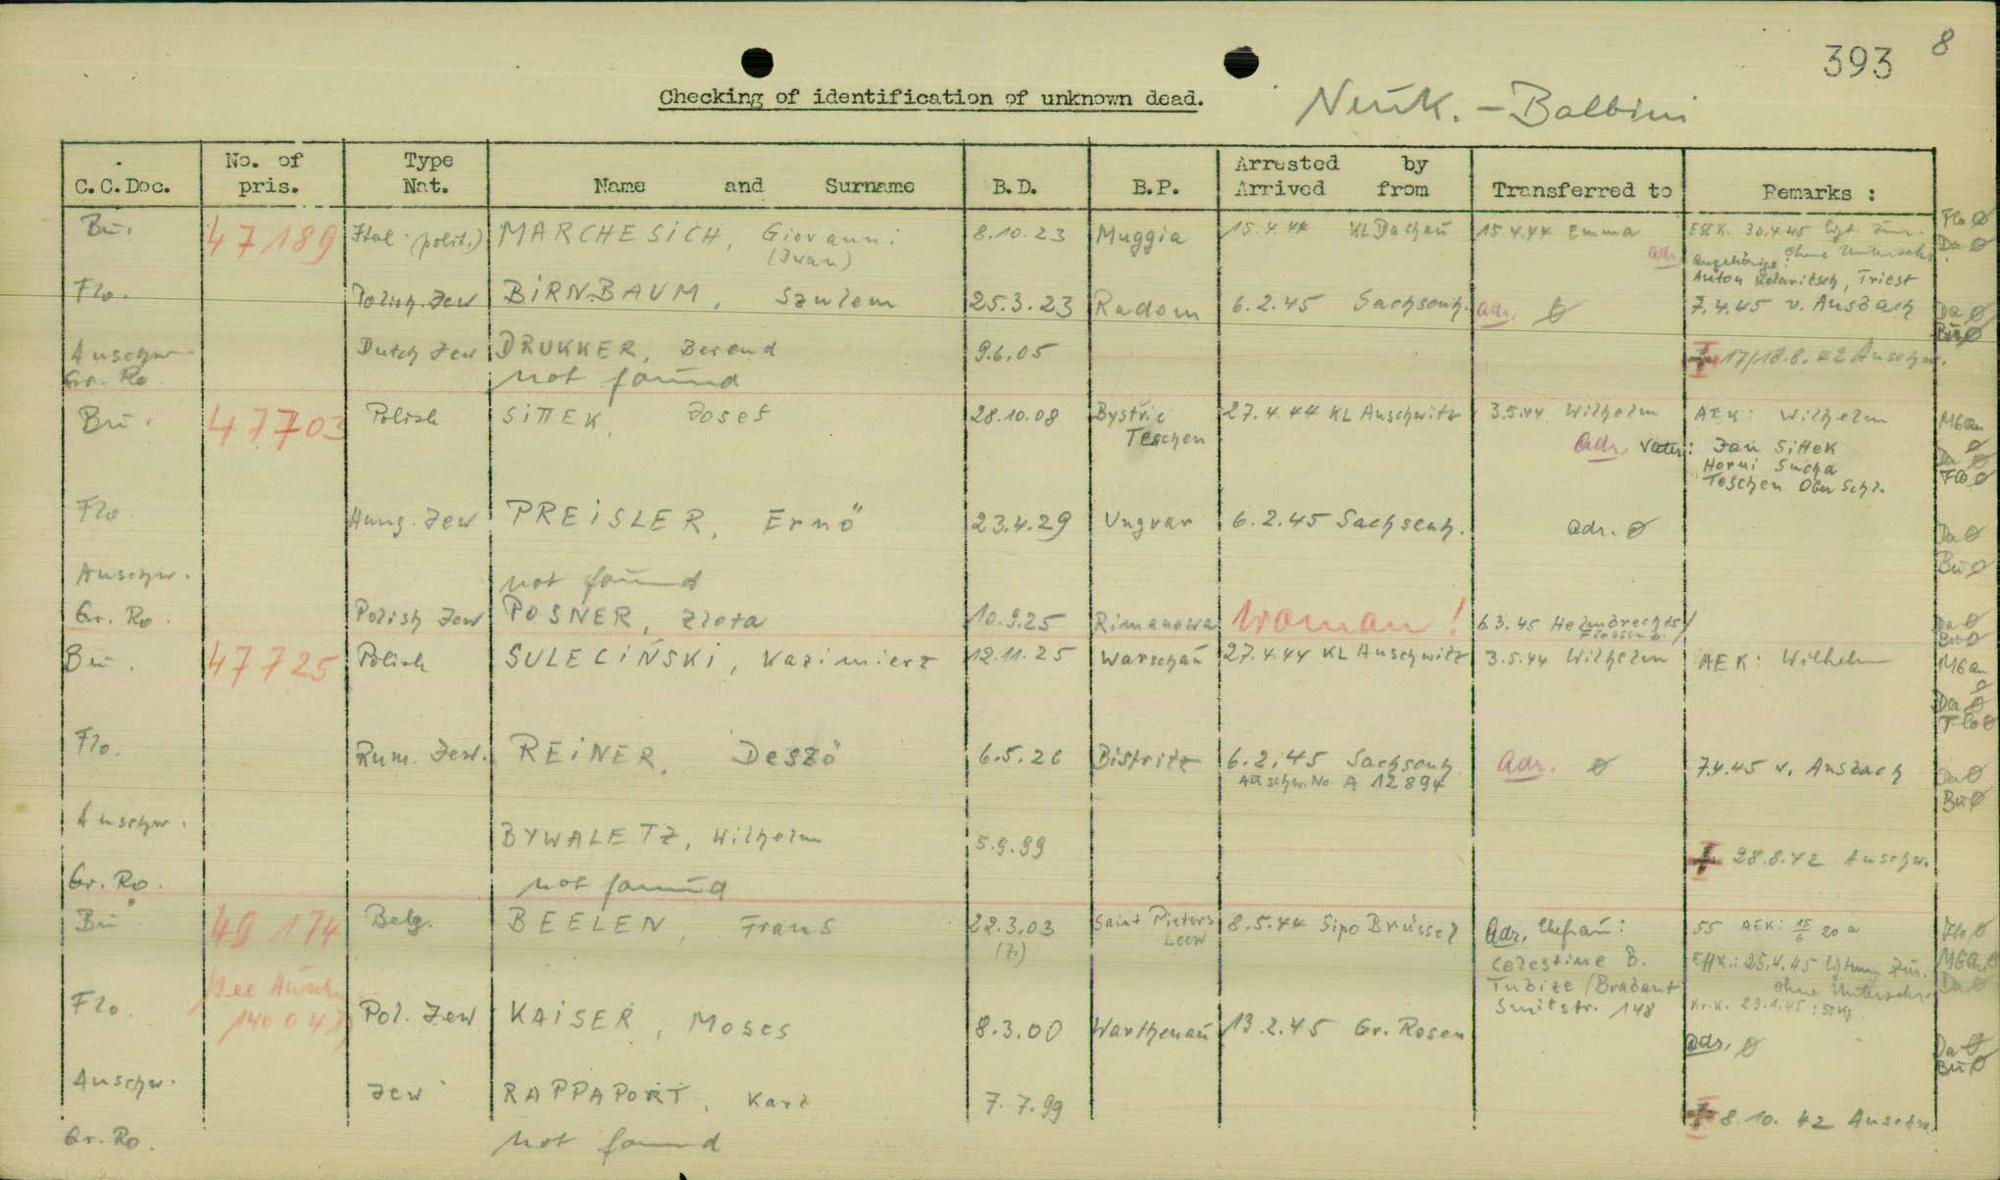 393 8
Checking of identification of unknown dead. Neuk. - Balbini
C.C.Doc. No. of pris. Type Nat. Name and Surname B.D. B.P. Arrested by Arrived from Transferred to Remarks :
Bu. 47189 Ital. (polit.) MARCHESICH, Giovanni 8.10.23 Muggia 15.4.44 KL Dachau 15.4.44 Emma 30.4.45 Flo ø
(Ivan) adr. Angehörige: ohne Unterschr. Da ø
Anton Kolaritsch, Triest
Flo. Polish. Jew BIRNBAUM, Szulem 25.3.23 Radom 6.2.45 Sachsenh. adr. ø 7.4.45 v. Ansbach Da ø
Bu ø
Auschw. Dutch Jew DRUKKER, Berend 9.6.05 17/18.8.42 Auschw.
Gr. Ro not found
Bu. 47703 Polish SITTEK, Josef 28.10.08 Bystric 27.4.44 KL Auschwitz 3.5.44 Wilhelm AEK: Wilhelm
Teschen adr. Vater: Jan Sittek
Horni Sucha Da ø
Teschen Ober Schl. Flo ø
Flo Hung. Jew PREISLER, Ernö 23.4.29 Ungvar 6.2.45 Sachsenh. adr. ø Da ø
Auschw. not found Bu ø
Gr. Ro. Polish Jew POSNER, Zlota 10.9.25 Rimanowa Woman! 6.3.45 Helmbrechts / Da ø
Flossenb. / Bu ø
Bu. 47725 Polish SULECIŃSKI, Kazimierz 12.11.25 Warschau 27.4.44 KL Auschwitz 3.5.44 Wilhelm AEK: Wilhelm
Da ø
Flo ø
Flo. Rum. Jew. REINER, Deszö 6.5.26 Bistritz 6.2.45 Sachsenh. Adr. ø 7.4.45 v. Ansbach Da ø
Auschw. No. A 12894 Bu ø
Auschw. BYWALETZ, Wilhelm 5.9.99 28.8.42 Auschw.
Gr. Ro. not found
Bu 49174 Belg. BEELEN, Frans 22.3.03 Saint Pieters 8.5.44 Sipo Brüssel Adr. Ehefrau: 55 AEK: 15/6 20a Flo ø
(7.) Leew Celestine B. 25.4.45
Tubize / Brabant ohne Unterschr. Da ø
see Auschw. Smitstr. 148 Kr.K. 23.1.45
Flo. 140047 Pol. Jew KAISER, Moses 8.3.00 Warthenau 13.2.45 Gr. Rosen adr. ø Da ø
Bu ø
Auschw. Jew RAPPAPORT, Karl 7.7.99 8.10.42 Auschw.
Gr. Ro. not found